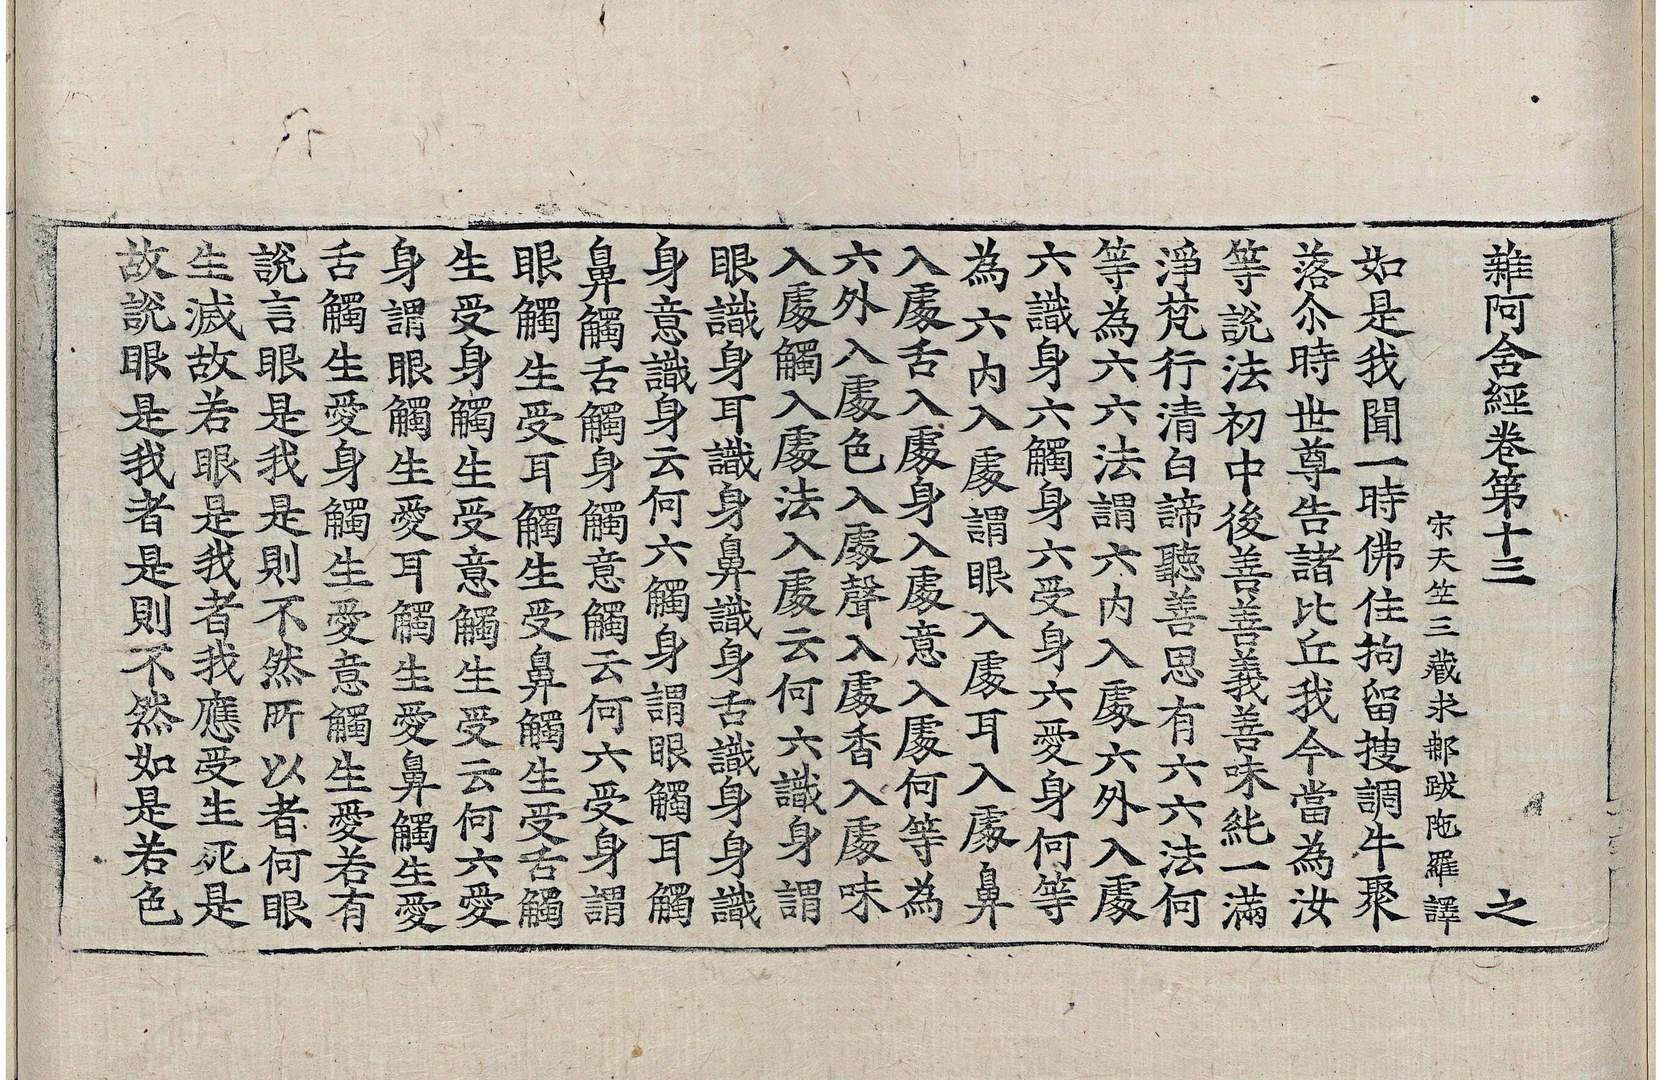 雜阿含經卷第十三 之
宋天竺三藏求那跋陁羅譯
如是我聞一時佛住拘留搜調牛聚
落尒時世尊告諸比丘我今當為汝
等說法初中後善善義善味純一滿
淨梵行清白諦聽善思有六六法何
等為六六法謂六內入處六外入處
六識身六觸身六受身六愛身何等
為六內入處謂眼入處耳入處鼻
入處舌入處身入處意入處何等為
六外入處色入處聲入處香入處味
入處觸入處法入處云何六識身謂
眼識身耳識身鼻識身舌識身身識
身意識身云何六觸身謂眼觸耳觸
鼻觸舌觸身觸意觸云何六受身謂
眼觸生受耳觸生受鼻觸生受舌觸
生受身觸生受意觸生受云何六愛
身謂眼觸生愛耳觸生愛鼻觸生愛
舌觸生愛身觸生愛意觸生愛若有
說言眼是我是則不然所以者何眼
生滅故若眼是我者我應受生死是
故說眼是我者是則不然如是若色